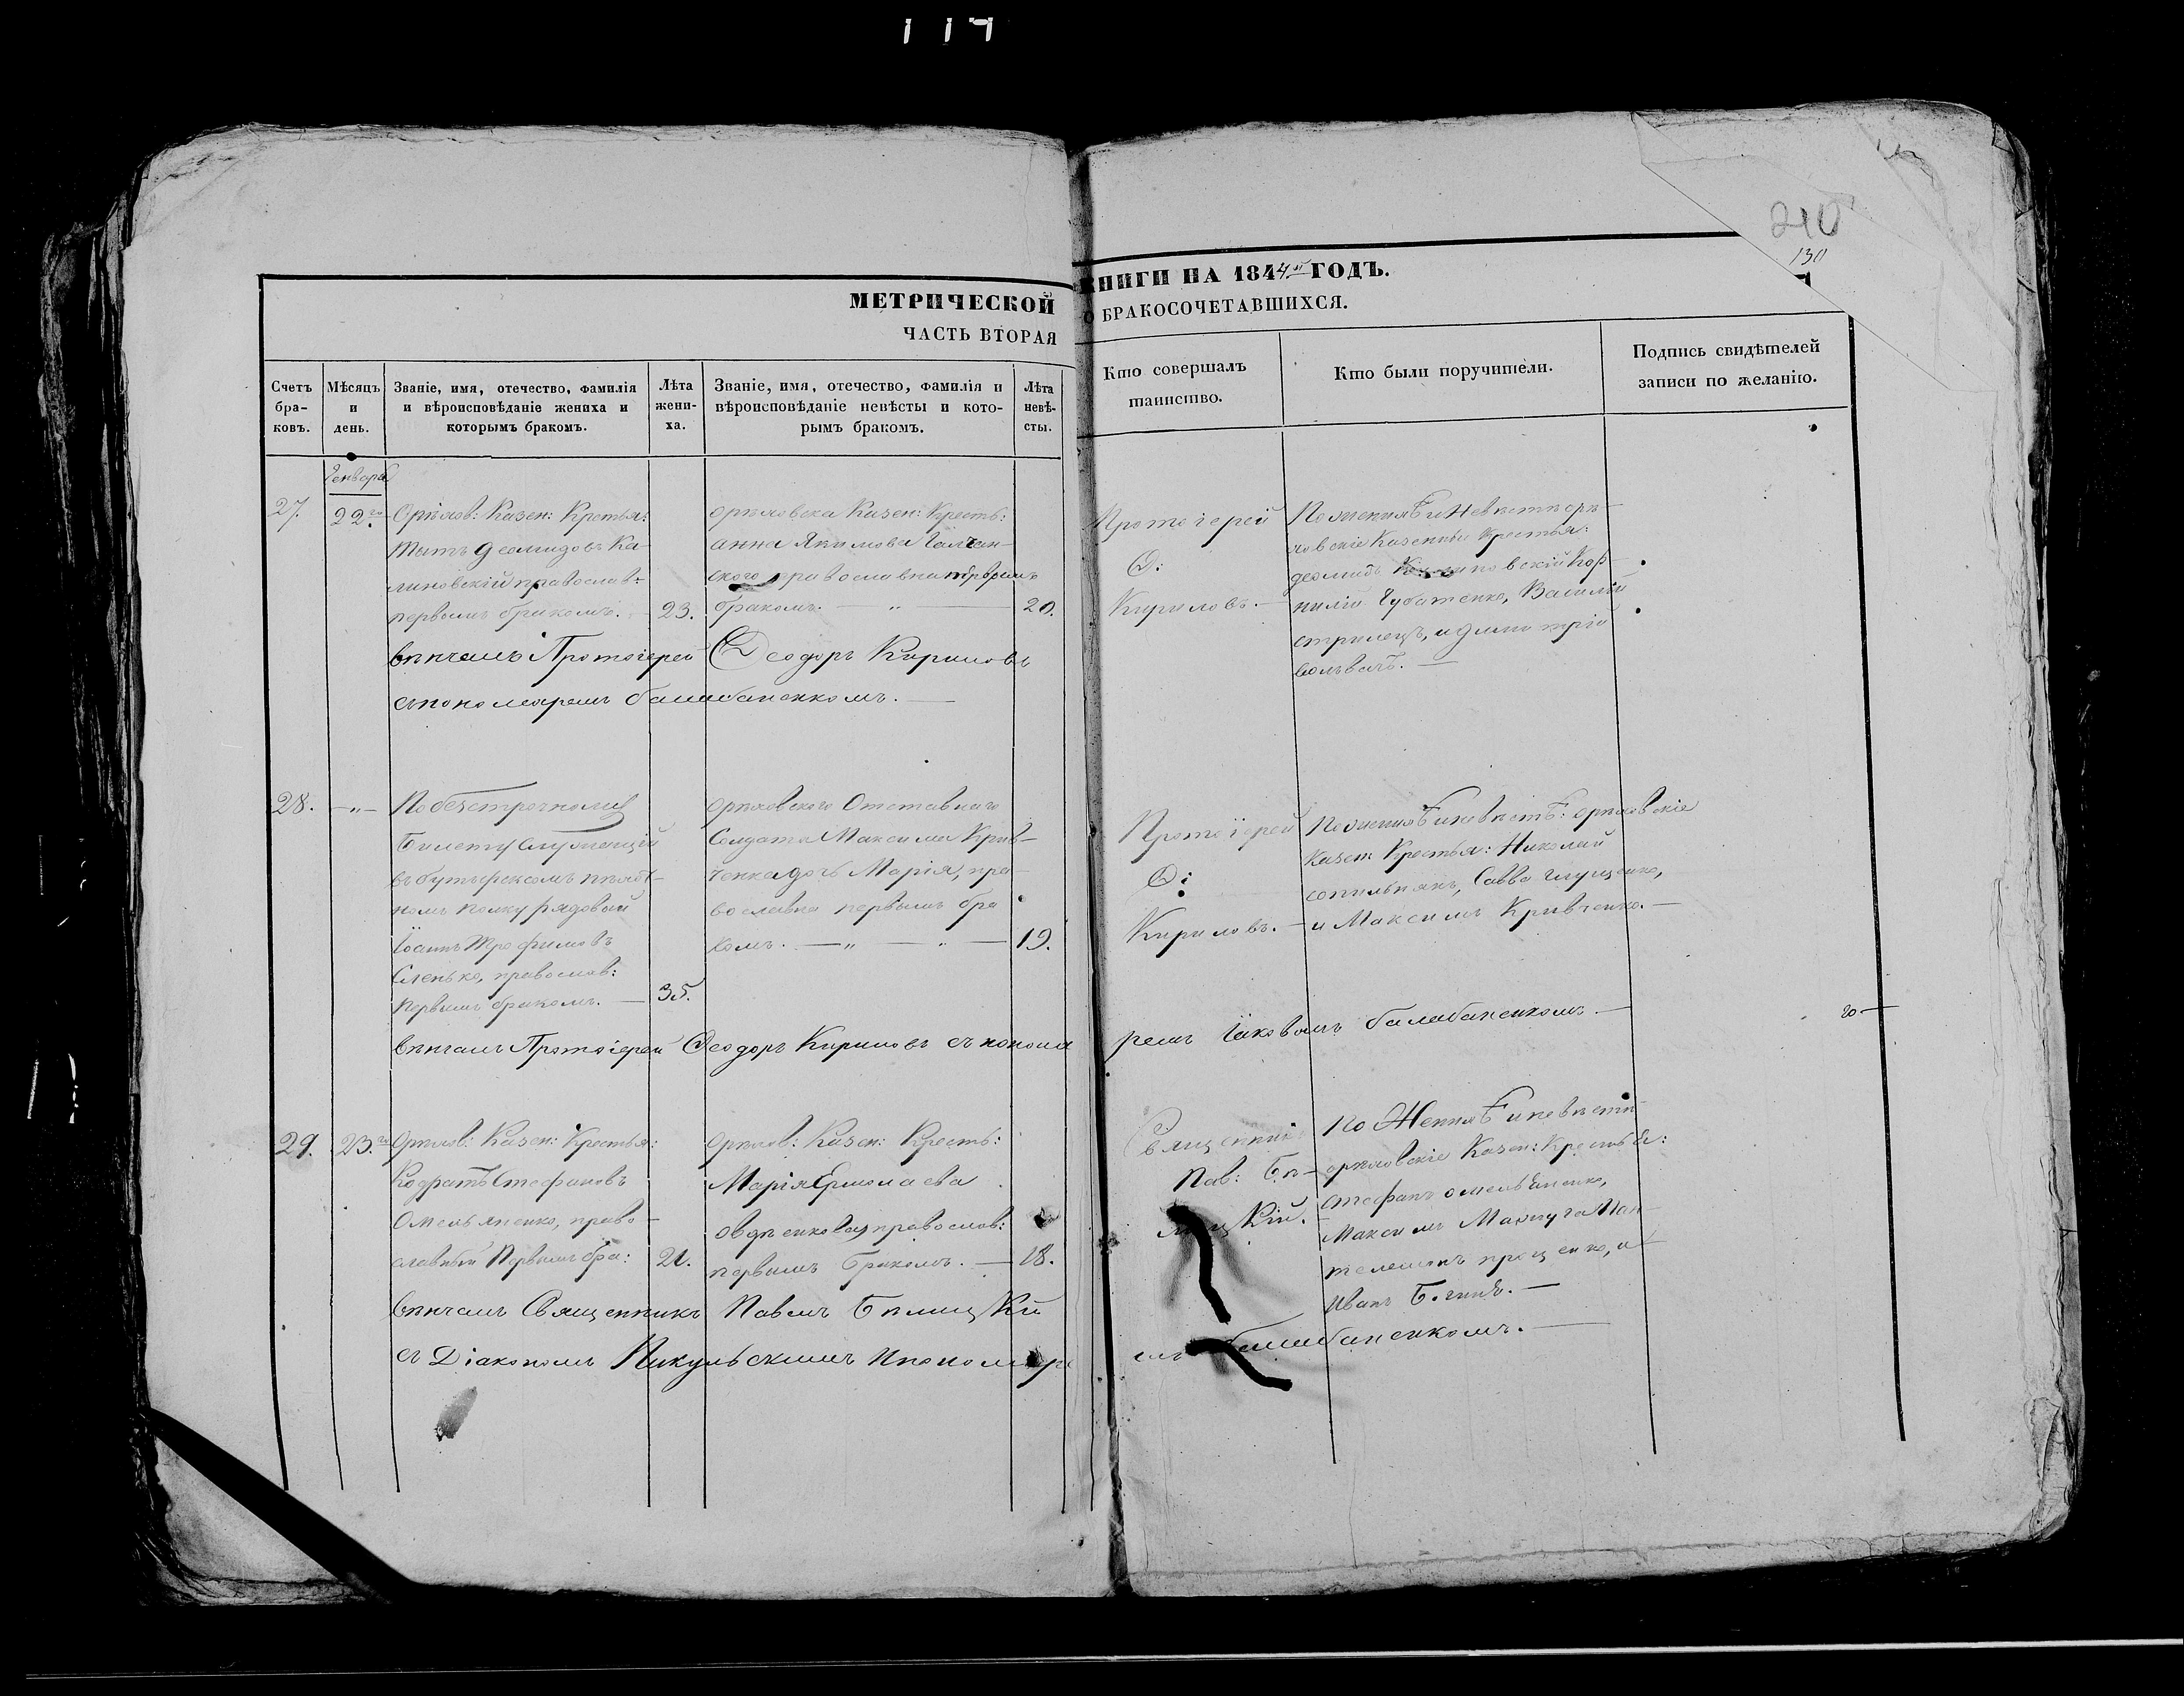 114
210
130
МЕТРИЧЕСКОЙ КНИГИ НА 1844й ГОДЪ.
ЧАСТЬ ВТОРАЯ О БРАКОСОЧЕТАВШИХСЯ.
Счетъ бра-
ковъ.
Мѣсяцъ
и
день.
Званіе, имя, отечество, фамилія
и вѣроисповѣданіе жениха и
которымъ бракомъ.
Лѣта
жени-
ха.
Званіе, имя, отечество, фамилія и
вѣроисповѣданіе невѣсты и кото-
рымъ бракомъ.
Лѣта
невѣ-
сты.
Кто совершалъ
таинство.
Кто были поручители.
Подпись свидѣтелей
записи по желанію.
Генваря
27.
22го
Орѣхов: Казен: Крестья:
Титъ Деомидовъ Ка-
линовскій православ:
первымъ бракомъ.
23.
орѣховска Казен: Кресть:
анна Якимова
православна первымъ
бракомъ. — „ —
20.
Протоіерей
Ѳ:
Кириловъ. —
По женихѣ и Невѣстѣ орѣ-
ховскіе Казенніи Крестья:
деомидъ Калиновскій Кор-
нилій Губатенко, Василій
стрилецъ, и димитрій
вольвачъ. —
вѣнчалъ Протоіерей Ѳеодоръ Кириловъ
съ пономаремъ балабаненкомъ. —
28.
— „ —
По безстрочному
билету служащій
въ бутырскомъ пѣхот-
номъ полку рядовый
Іоаннъ Трофимовъ
Сленько, православ:
первымъ бракомъ. —
35.
орѣховского Отставнаго
Солдата Максима Крив-
ченка дочь Марія, пра-
вославна первымъ бра
комъ. — „ — „ —
19.
Протоіерей
Ѳ:
Кириловъ. —
По женихѣ и невѣстѣ: орѣховскіе
Казен: Крестья: Николай
сопильнякъ, Савва глущенко,
и Максимъ Кривченко. —
вѣнчалъ Протоіерей Ѳеодоръ Кириловъ съ понома
ремъ Іаковомъ балабаненкомъ. —
29.
23.го
Орѣхов: Казен: Крестья:
Кодратъ Стефановъ
Омельяненко, право-
славный Первымъ бра:
21.
Орѣхов: Казен: Кресть:
Марія Ермолаева
Овдѣенкова, православ:
первымъ бракомъ. —
18.
Священникъ
Пав: Бѣ-
лицкій. —
По Женихѣ и невѣстѣ
орѣховскіе Казен: Крестья:
стефанъ омельяненко,
Максимъ Мажуга Пан-
телемонъ проценко, и
Иванъ
вѣнчалъ Священникъ Павелъ Бѣлицкій
съ Діакономъ Пикульскимъ и пономаре
мъ балабаненкомъ. —